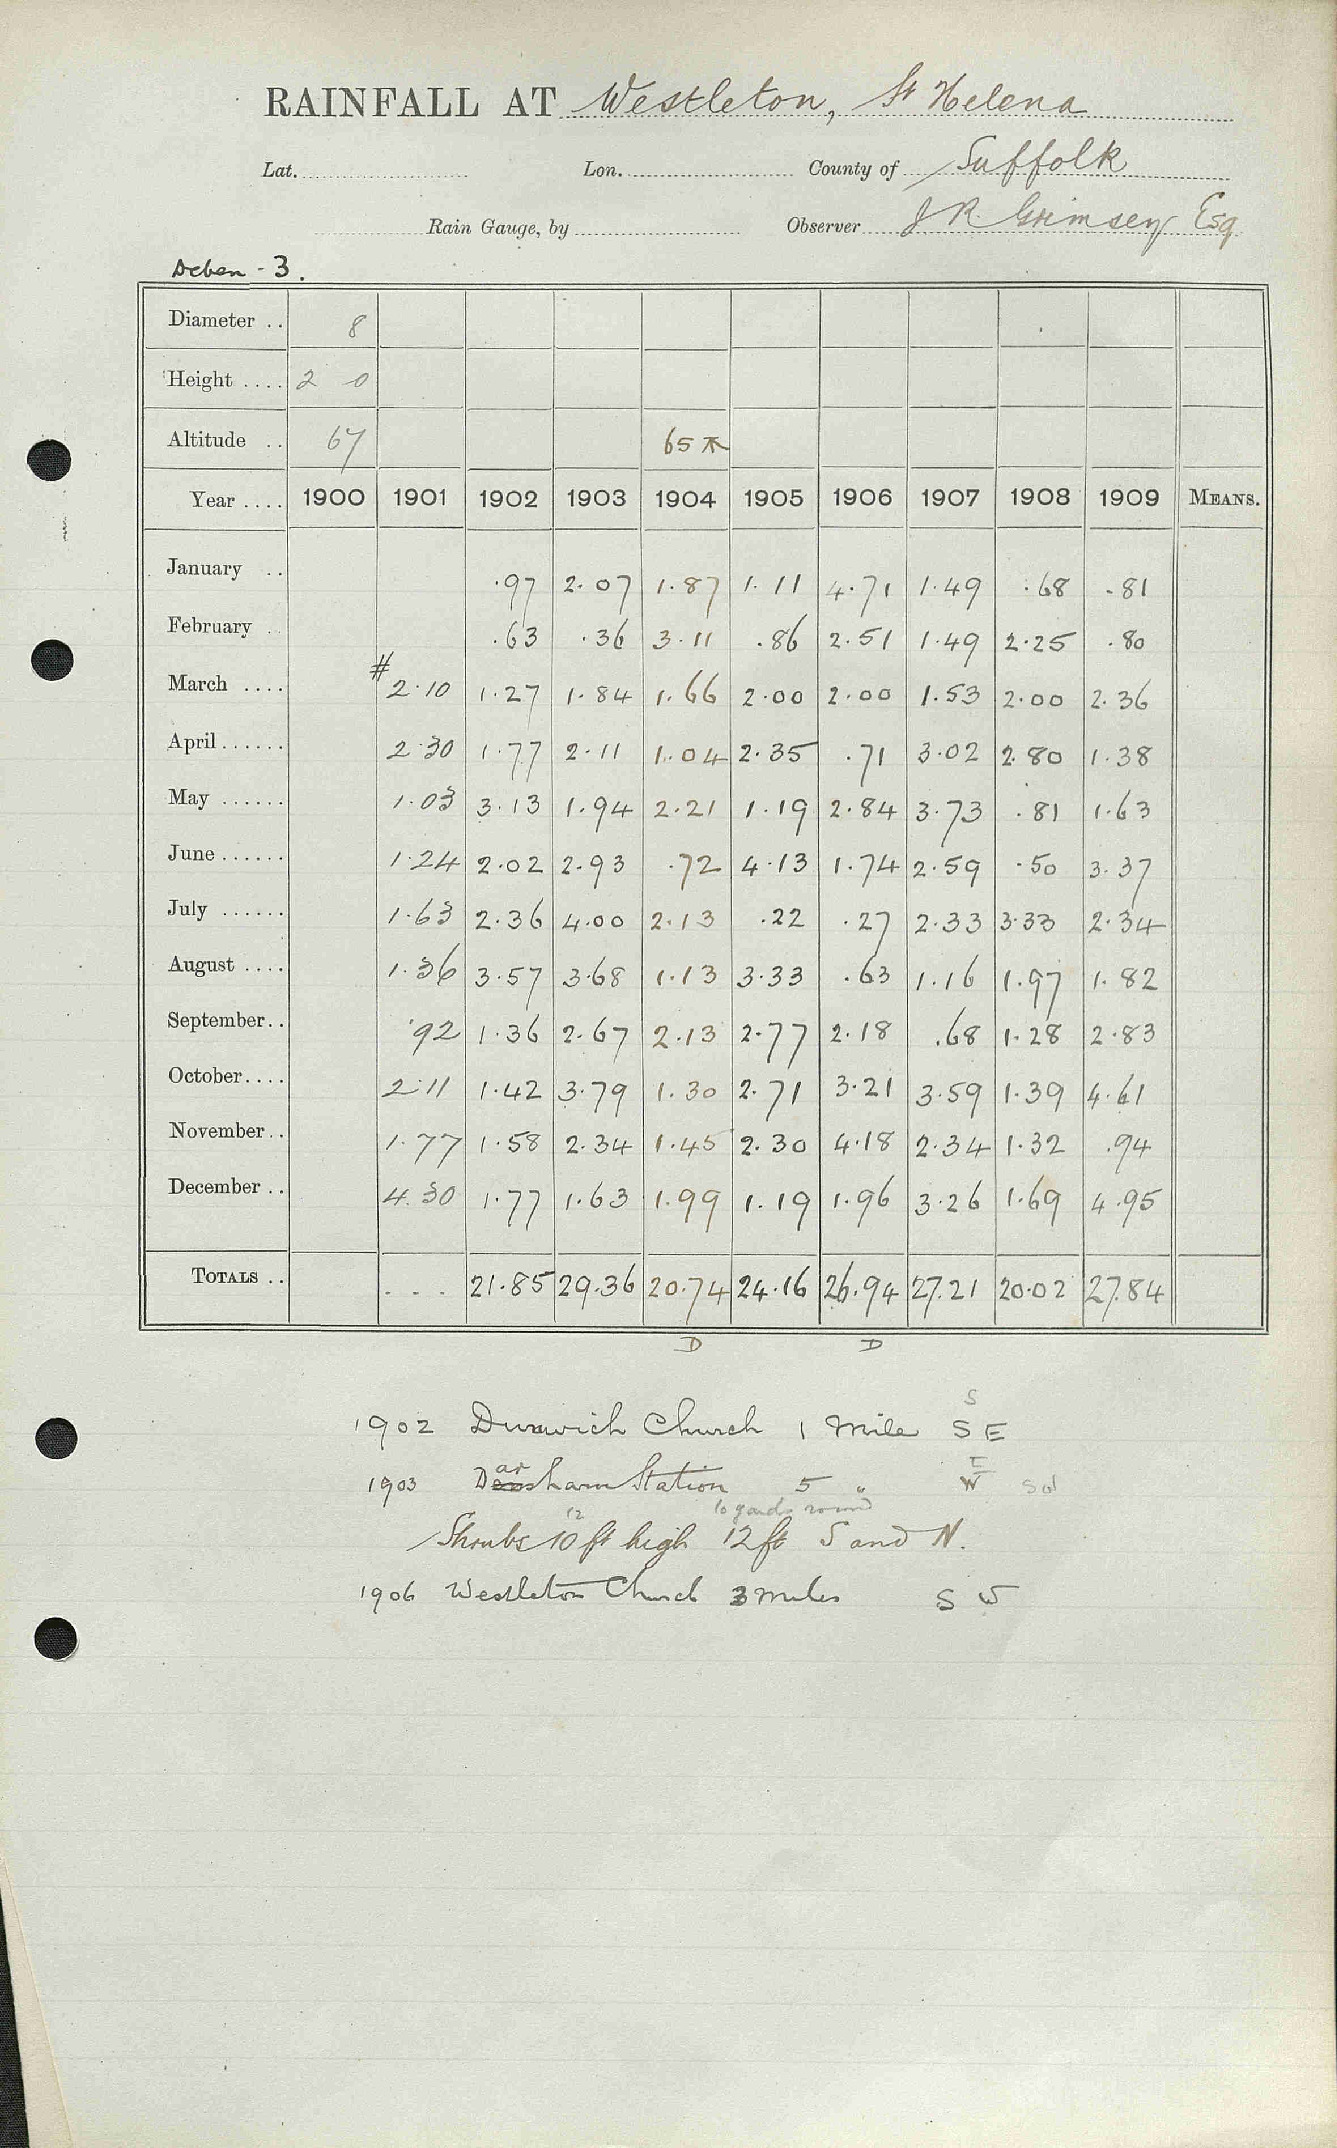 RAINFALL AT Westleton, St Helena
Lat. Lon. County of Suffolk
Rain Gauge, by Observer J R Grimsey Esq
Deben - 3.
Diameter .. 8
Height .... 2 0
Altitude .. 67 65
Year .... 1900 1901 1902 1903 1904 1905 1906 1907 1908 1909 MEANS.
January .. .97 2.07 1.87 1.11 4.71 1.49 .68 .81
February .. .63 .36 3.11 .86 2.51 1.49 2.25 .80
March .... # 2.10 1.27 1.84 1.66 2.00 2.00 1.53 2.00 2.36
April...... 2.30 1.77 2.11 1.04 2.35 .71 3.02 2.80 1.38
May ...... 1.03 3.13 1.94 2.21 1.19 2.84 3.73 .81 1.63
June...... 1.24 2.02 2.93 .72 4.13 1.74 2.59 .50 3.37
July ...... 1.63 2.36 4.00 2.13 .22 .27 2.33 3.33 2.34
August .... 1.36 3.57 3.68 1.13 3.33 .63 1.16 1.97 1.82
September.. .92 1.36 2.67 2.13 2.77 2.18 .68 1.28 2.83
October.... 2.11 1.42 3.79 1.30 2.71 3.21 3.59 1.39 4.61
November.. 1.77 1.58 2.34 1.45 2.30 4.18 2.34 1.32 .94
December .. 4.30 1.77 1.63 1.99 1.19 1.96 3.26 1.69 4.95
TOTALS .. ... 21.85 29.36 20.74 24.16 26.94 27.21 20.02 27.84
D D
S
1902 Dunwich Church 1 Mile S E
ar E
1903 Dersham Station 5 " W SW
12 10 yards round
Shrubs 10 ft high 12 ft S and N.
1906 Westleton Church 3 miles S W